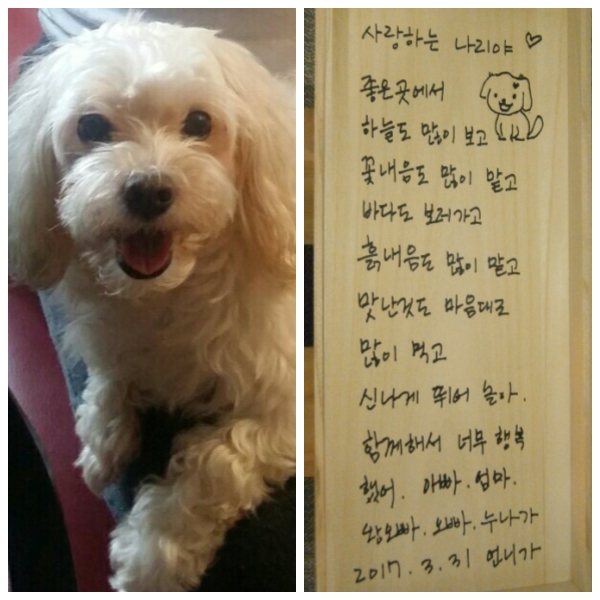 사랑하는 나리야 ♡
좋은곳에서
하늘도 많이 보고
꽃내음도 많이 맡고
바다도 보러가고
흙내음도 많이 맡고
맛난것도 마음대로
많이 먹고
신나게 뛰어 놀아.
함께해서 너무 행복
했어. 아빠. 엄마.
왕오빠. 오빠. 누나가
2017. 3. 31 언니가